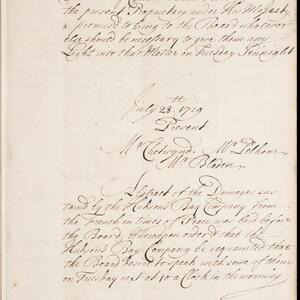 the present Proprietors under His Majesty,
& promised to bring to the Board whatever
else should be necessary to give them any
Light into that Matter on Tuesday Sennight
July 28th 1719
Present
Mr Chetwynd. Mr Pelham.
Mr Bladen.
Abstract of the Damages sus-
taind by the Hudsons Bay Company from
the French in times of Peace was laid before
the Board, Whereupon orderd that the
Hudsons Bay Company be acquainted that
the Board desire to speak with some of them
on Tuesday next at 10 a Clock in the morning